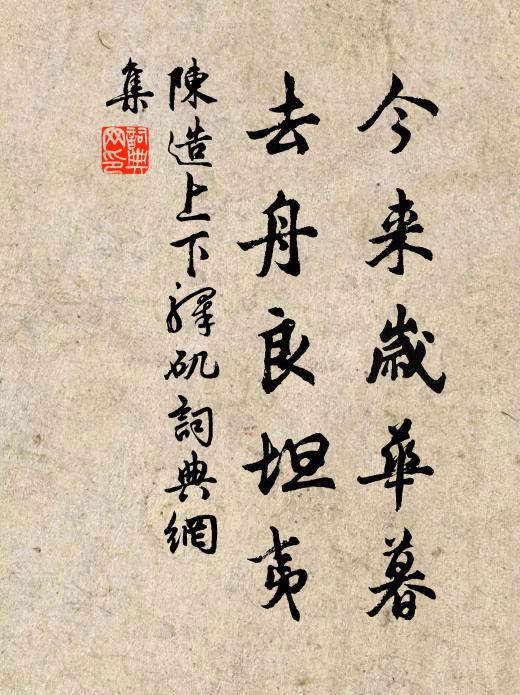 今来歲華暮
去舟良坦夷
陳造上下驛矶詞典網
集
詞典
网印